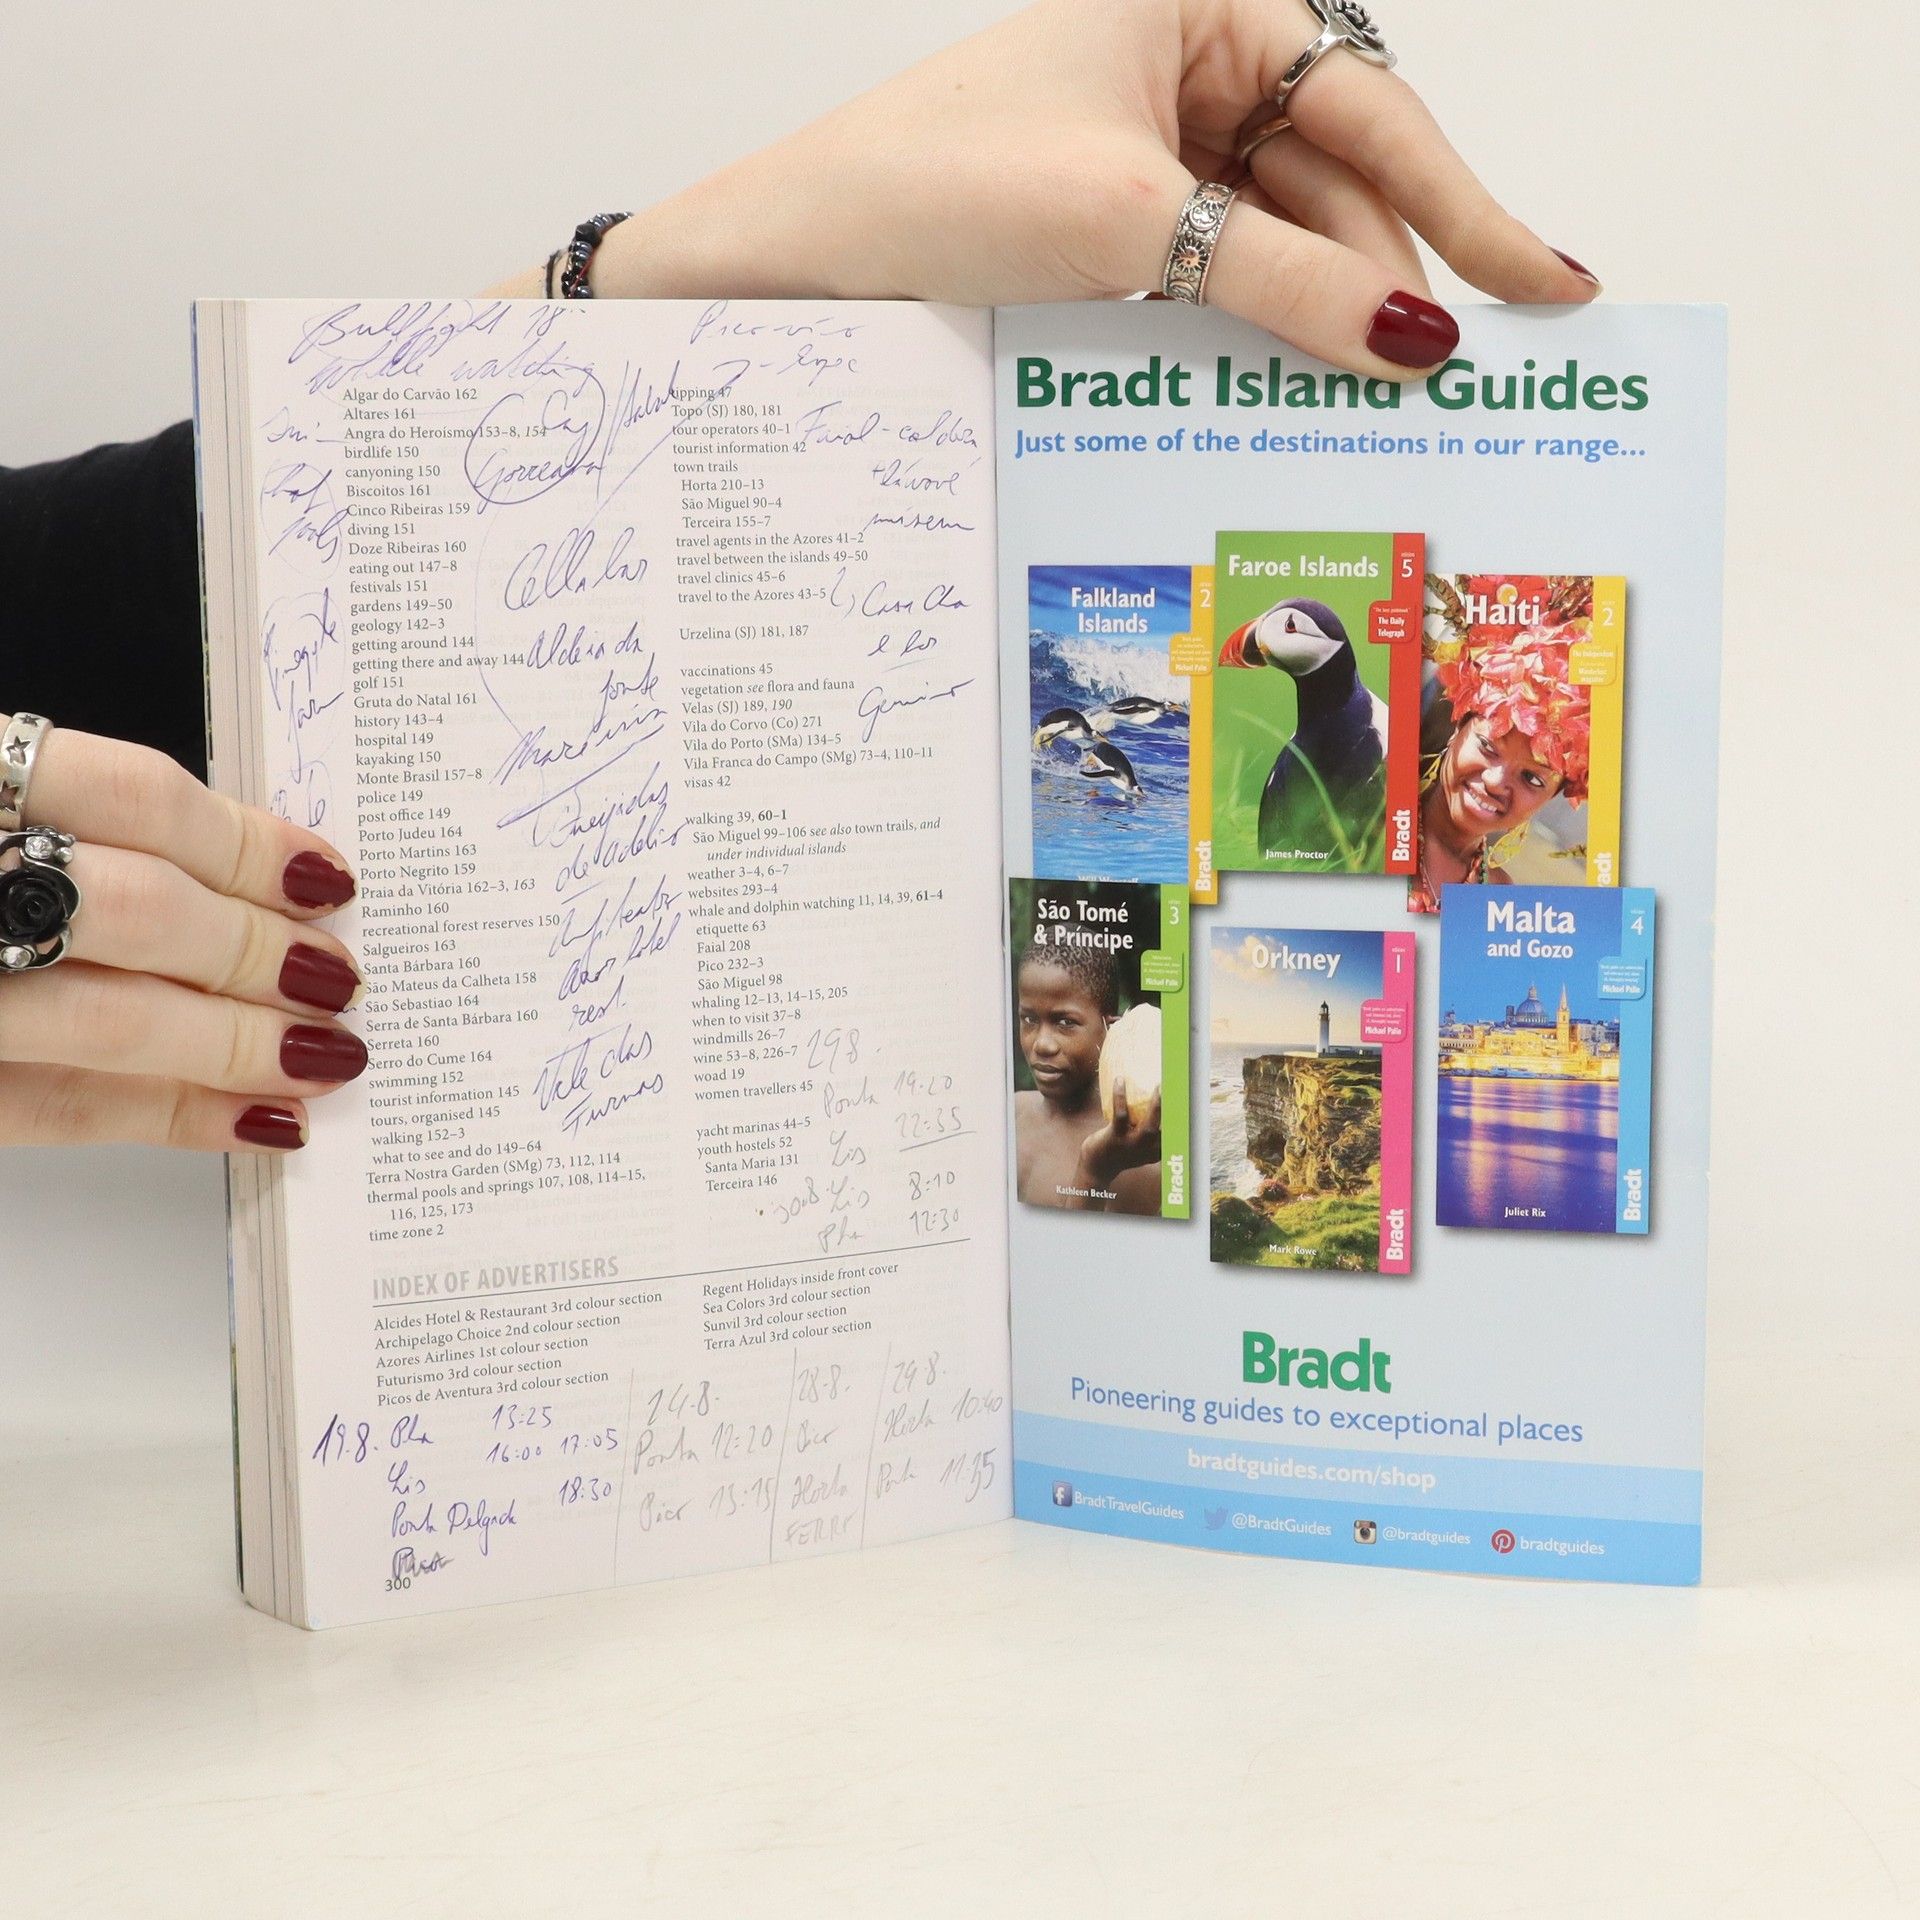 Bullfight 18
Whale watching
Algar do Carvão 162
Altares 161
Angra do Heroísmo 153–8, 154
birdlife 150
canyoning 150
Biscoitos 161
Cinco Ribeiras 159
diving 151
Doze Ribeiras 160
eating out 147–8
festivals 151
gardens 149–50
geology 142–3
getting around 144
getting there and away 144
golf 151
Gruta do Natal 161
history 143–4
hospital 149
kayaking 150
Monte Brasil 157–8
police 149
post office 149
Porto Judeu 164
Porto Martins 163
Porto Negrito 159
Praia da Vitória 162–3, 163
Raminho 160
recreational forest reserves 150
Salgueiros 163
Santa Bárbara 160
São Mateus da Calheta 158
São Sebastiao 164
Serra de Santa Bárbara 160
Serreta 160
Serro do Cume 164
swimming 152
tourist information 145
tours, organised 145
walking 152–3
what to see and do 149–64
Terra Nostra Garden (SMg) 73, 112, 114
thermal pools and springs 107, 108, 114–15,
116, 125, 173
time zone 2
Gorreana
Cella bar
Aldeia da
fonte
de Adeliso
rest.
Vale das
Furnas
tipping 47
Topo (SJ) 180, 181
tour operators 40–1
tourist information 42
town trails
Horta 210–13
São Miguel 90–4
Terceira 155–7
travel agents in the Azores 41–2
travel between the islands 49–50
travel clinics 45–6
travel to the Azores 43–5
Urzelina (SJ) 181, 187
vaccinations 45
vegetation see flora and fauna
Velas (SJ) 189, 190
Vila do Corvo (Co) 271
Vila do Porto (SMa) 134–5
Vila Franca do Campo (SMg) 73–4, 110–11
visas 42
walking 39, 60–1
São Miguel 99–106 see also town trails, and
under individual islands
weather 3–4, 6–7
websites 293–4
whale and dolphin watching 11, 14, 39, 61–4
etiquette 63
Faial 208
Pico 232–3
São Miguel 98
whaling 12–13, 14–15, 205
when to visit 37–8
windmills 26–7
wine 53–8, 226–7
woad 19
women travellers 45
yacht marinas 44–5
youth hostels 52
Santa Maria 131
Terceira 146
Faial - caldera
+ lávové
muzeum
Casa da
298.
Ponta 19:20
Lis 22:35
30.8 Lis 8:10
Pha 12:30
INDEX OF ADVERTISERS
Alcides Hotel & Restaurant 3rd colour section
Archipelago Choice 2nd colour section
Azores Airlines 1st colour section
Futurismo 3rd colour section
Picos de Aventura 3rd colour section
Regent Holidays inside front cover
Sea Colors 3rd colour section
Sunvil 3rd colour section
Terra Azul 3rd colour section
19.8. Pha 13:25
Lis 16:00 17:05
Ponta Delgada 18:30
24.8.
Ponta 12:20
Pico 13:15
28.8.
Pico
Horta
FERRY
29.8.
Horta 10:40
Ponta 11:35
300
Bradt Island Guides
Just some of the destinations in our range...
Falkland
Islands
2
Michael Palin
Bradt
Faroe Islands
5
The Daily
Telegraph
James Proctor
Bradt
Haiti
2
Bradt
São Tomé
& Príncipe
3
Michael Palin
Kathleen Becker
Bradt
Orkney
1
Michael Palin
Mark Rowe
Bradt
Malta
and Gozo
4
Michael Palin
Juliet Rix
Bradt
Bradt
Pioneering guides to exceptional places
bradtguides.com/shop
BradtTravelGuides
@BradtGuides
@bradtguides
bradtguides